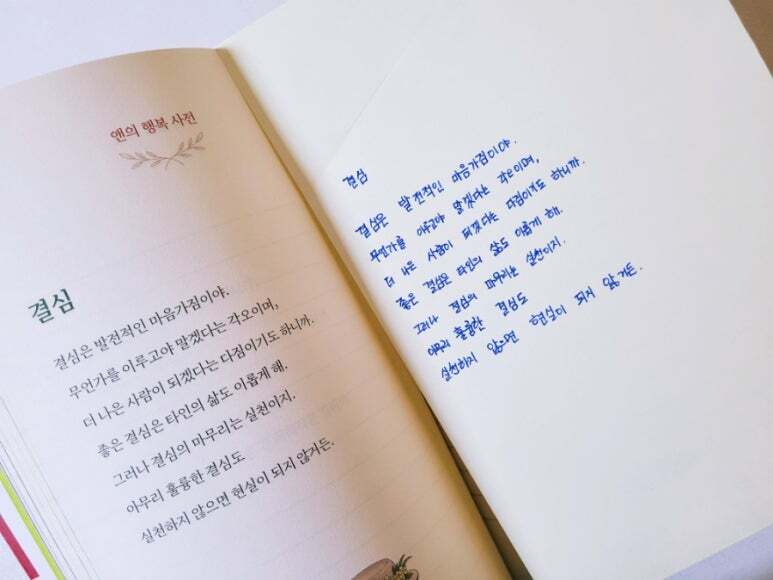 앤의 행복 사전
결심
결심은 발전적인 마음가짐이야.
무언가를 이루고야 말겠다는 각오이며,
더 나은 사람이 되겠다는 다짐이기도 하니까.
좋은 결심은 타인의 삶도 이롭게 해.
그러나 결심의 마무리는 실천이지.
아무리 훌륭한 결심도
실천하지 않으면 현실이 되지 않거든.
결심
결심은 발전적인 마음가짐이야.
무언가를 이루고야 말겠다는 각오이며,
더 나은 사람이 되겠다는 다짐이기도 하니까.
좋은 결심은 타인의 삶도 이롭게 해.
그러나 결심의 마무리는 실천이지.
아무리 훌륭한 결심도
실천하지 않으면 현실이 되지 않거든.